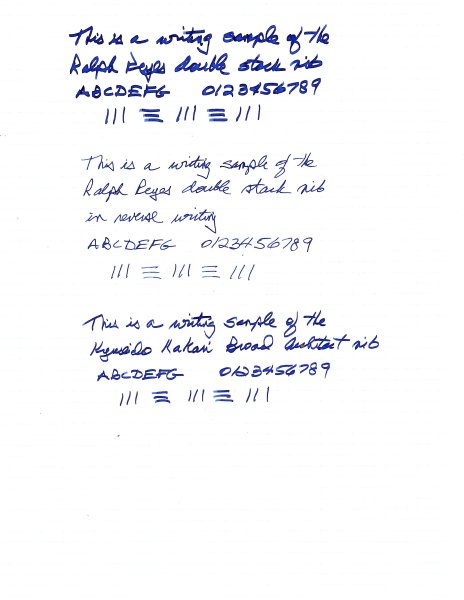 This is a writing sample of the
Ralph Reyes double stack nib
ABCDEFG 0123456789
This is a writing sample of the
Ralph Reyes double stack nib
in reverse writing
ABCDEFG 0123456789
This is a writing sample of the
Hakari Broad Architect nib
ABCDEFG 0123456789